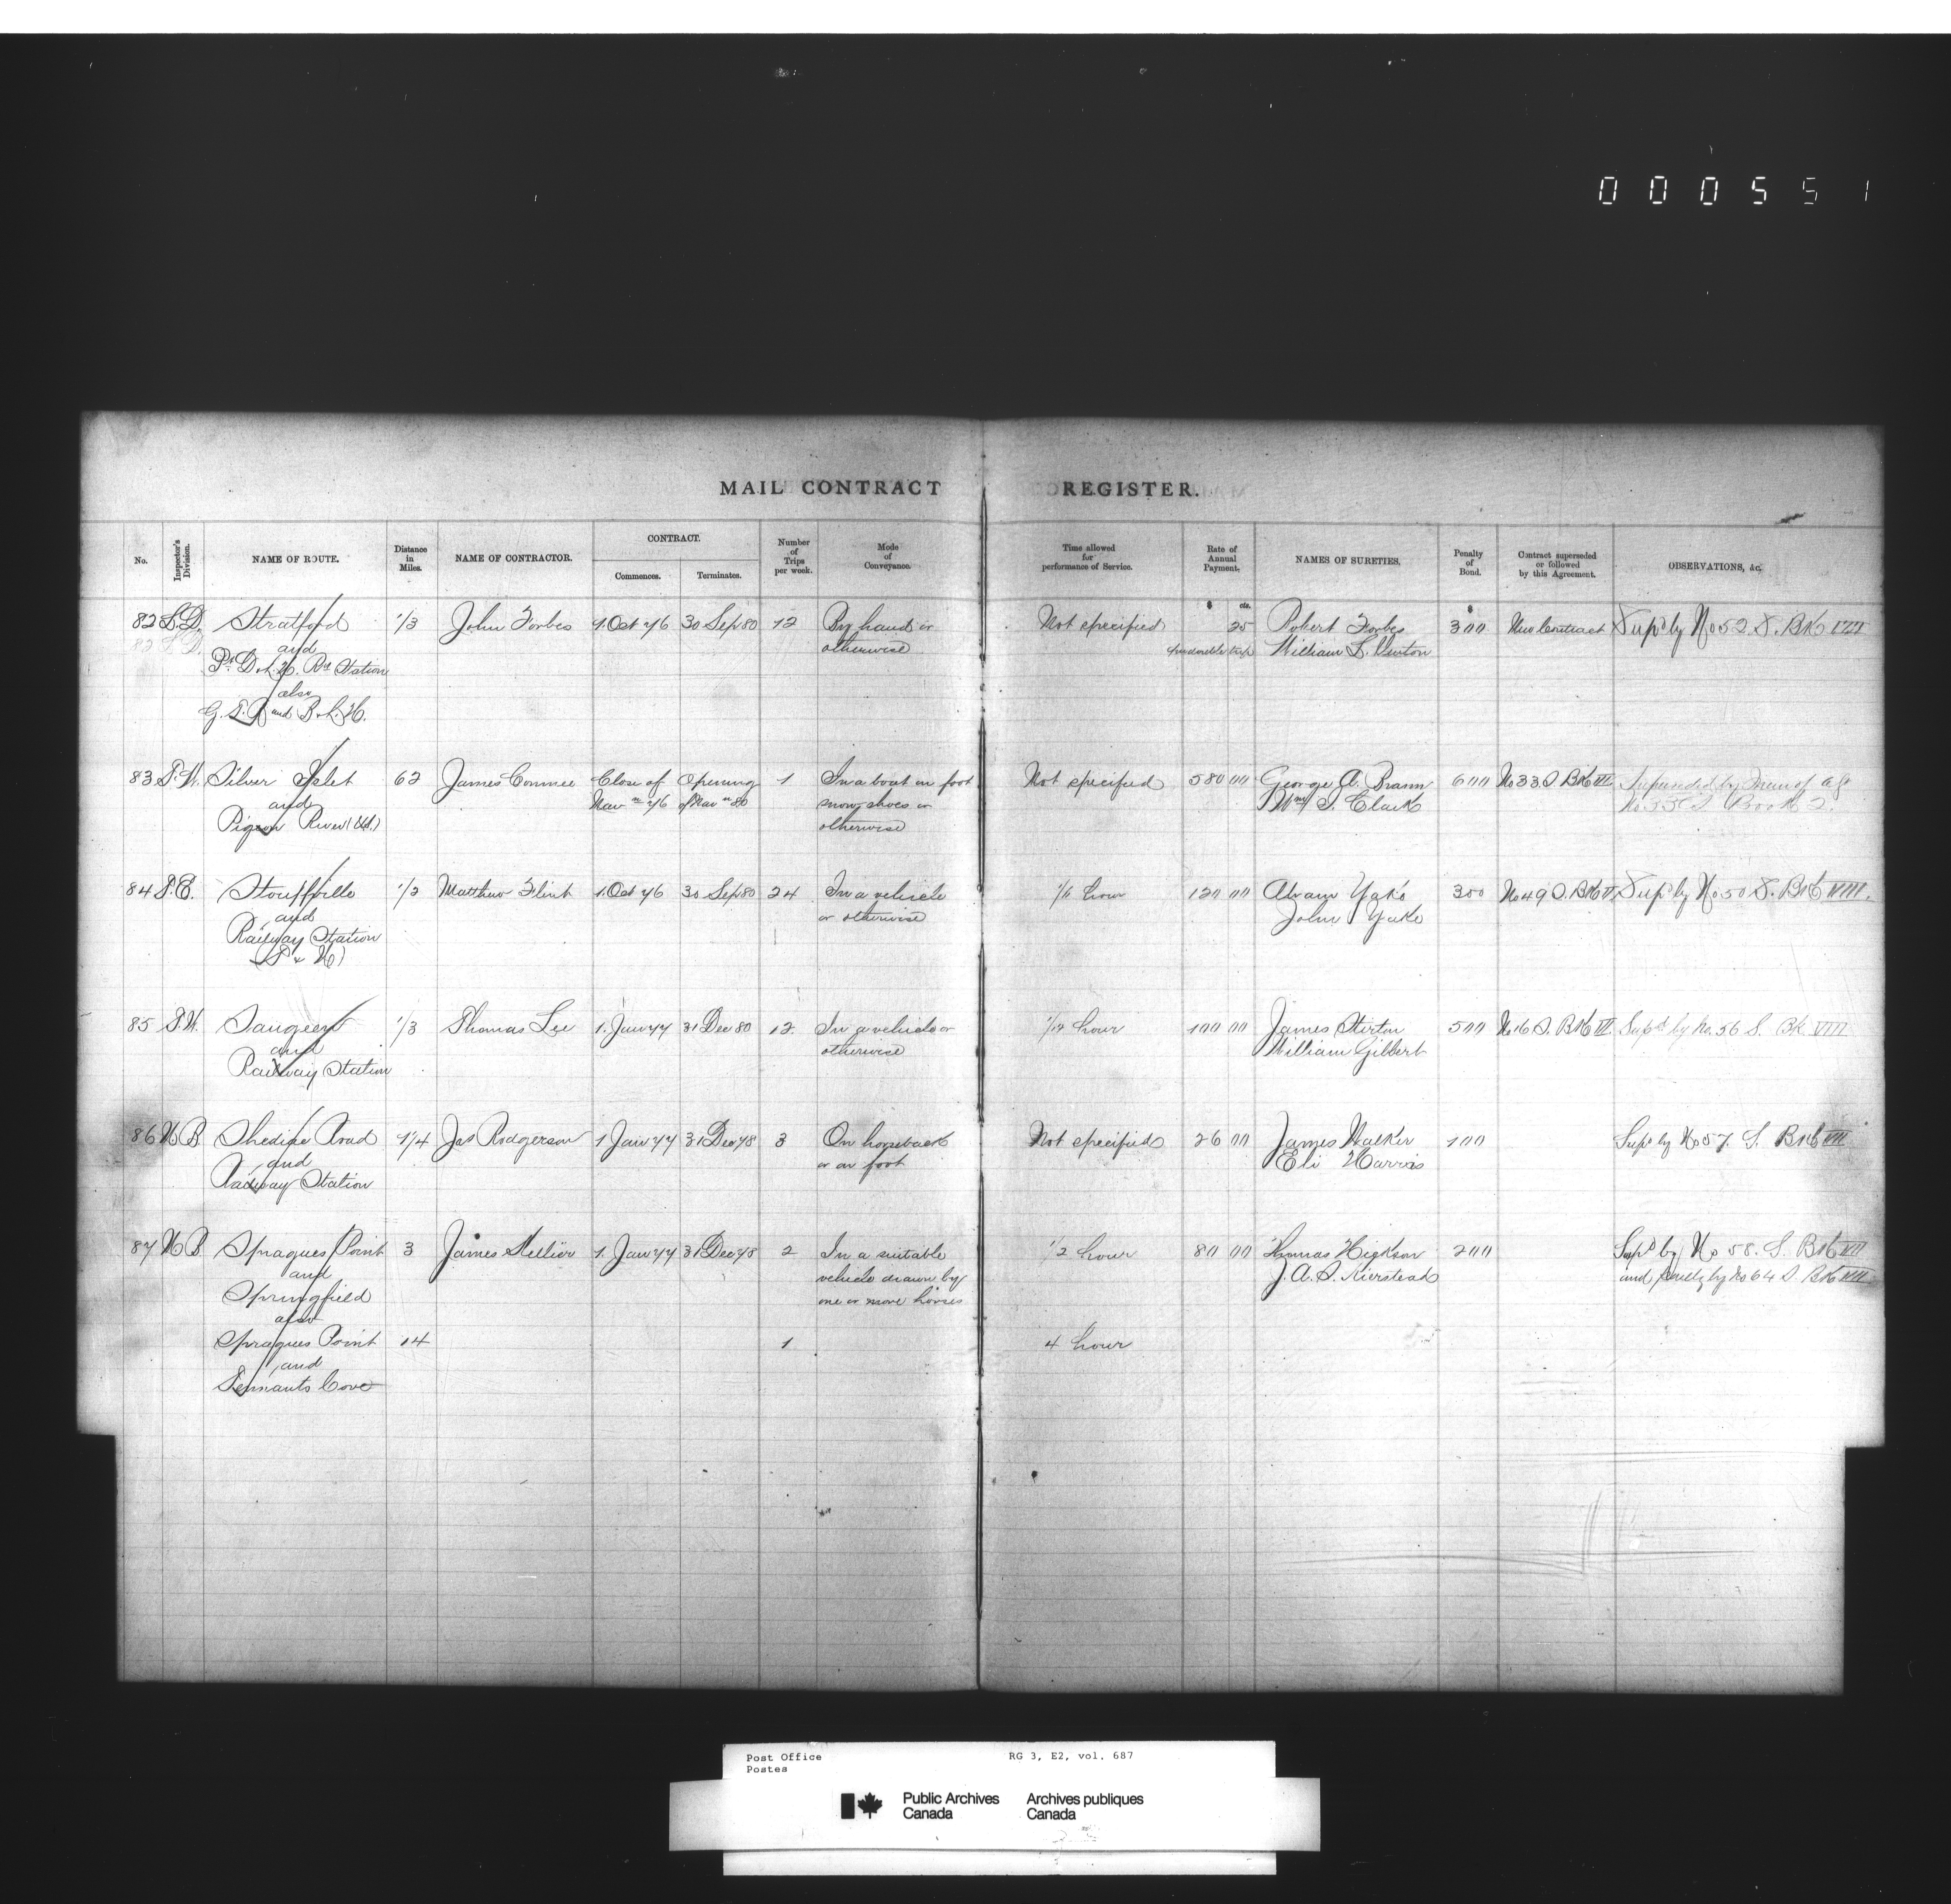 000551
MAIL CONTRACT REGISTER.
No. Inspector's Division. NAME OF ROUTE. Distance in Miles. NAME OF CONTRACTOR. CONTRACT. Commences. Terminates. Number of Trips per week. Mode of Conveyance. Time allowed for performance of Service. Rate of Annual Payment. NAMES OF SURETIES. Penalty of Bond. Contract superseded or followed by this Agreement. OBSERVATIONS, &c.
$ cts. $
82 Stratford 1/3 John Forbes 1. Oct 76 30 Sep 80 12 By hand or Not specified 25 Robert Forbes 300 New Contract Supd by No 52. S. Bk VIII
and otherwise double trip William
Station
also
and
83 Silver Islet 62 James Conmee Close of Opening 1 In a boat on foot Not specified 580 00 George A. 600 No 33 S Bk VII
and Navn 76 of Navn 80 snow shoes or Wm S. Clark No 33 S Book 2.
Pigeon River otherwise
84 Stouffville 1/2 Matthew Flint 1. Oct 76 30 Sep 80 24 In a vehicle hour 120 00 Abram Yake 300 No 49 S. Bk Supd by No 50 S. Bk VIII.
and or otherwise John Yake
Railway Station
(T & N)
85 Saugeen 1/3 Thomas Lee 1. Jany 77 31 Dec 80 12. In a vehicle or hour 100 00 James Stirton 500 No 16 S. Bk Supd by No. 56 S. Bk VIII
and otherwise William Gilbert
Railway Station
86 N B Shediac Road 1/4 Jas Rodgerson 1 Jany 77 31 Dec 78 3 On horseback Not specified 26 00 James Walker 100 Supd by No 57. S. Bk VII
and or on foot Eli Harris
Railway Station
87 N B Spragues Point 3 James 1. Jany 77 31 Dec 78 2 In a suitable 1/2 hour 80 00 Thomas 200 Supd by No 58. S. Bk VII
and vehicle drawn by J. A. S. Kierstead and by No 64 S Bk VII
Springfield one or more horses
also
Spragues Point 14 1 4 hour
and
Tennants Cove
Post Office RG 3, E2, vol. 687
Postes
Public Archives Archives publiques
Canada Canada